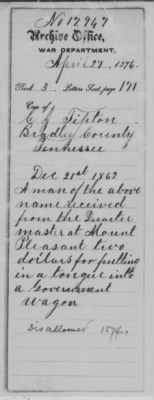 No 17.747
Archive Office,
WAR DEPARTMENT.
April 27, 1876.
Book 3. Letters Sent, page 171
Case of
C J Tipton
Bradley County
Tennessee
Dec 21st 1862
A man of the above
name received
from the Quarter
master at Mount
Pleasant two
dollars for putting
in a tongue into
a Government
wagon
Disallowed 1874